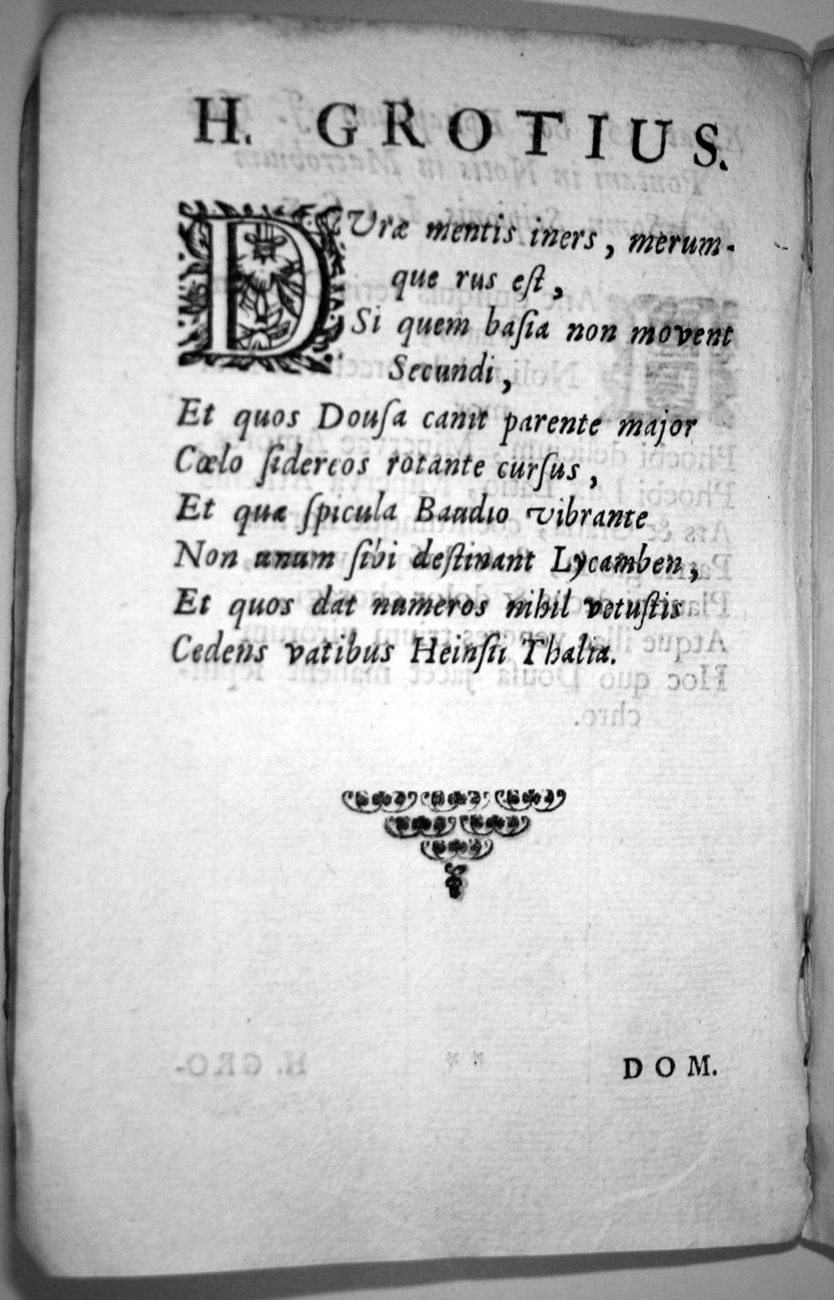 H. GROTIUS.
DUræ mentis iners, merum-
que rus eſt,
Si quem baſia non movent
Secundi,
Et quos Douſa canit parente major
Cœlo ſidereos rotante curſus,
Et quæ ſpicula Baudio vibrante
Non unum ſibi deſtinant Lycamben,
Et quos dat numeros nihil vetuſtis
Cedens vatibus Heinſii Thalia.
DOM.